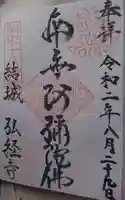 奉拝
令和二年八月二十九日
南無阿彌陀佛
結城 弘経寺